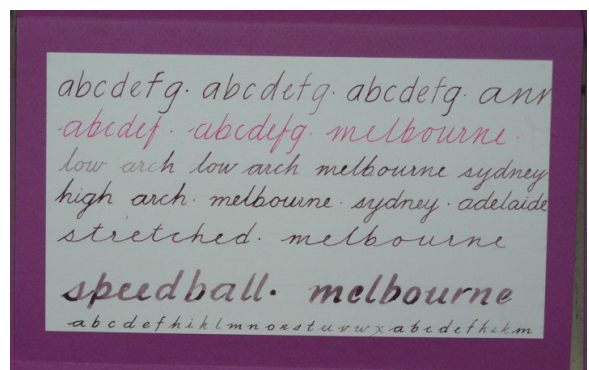 abcdefg. abcdefg. abcdefg. ann
abcdef. abcdefg. melbourne.
low arch low arch melbourne sydney
high arch. melbourne. sydney. adelaide
stretched. melbourne
speedball. melbourne
abcdefhiklmnorstuvwxabcdefhkm